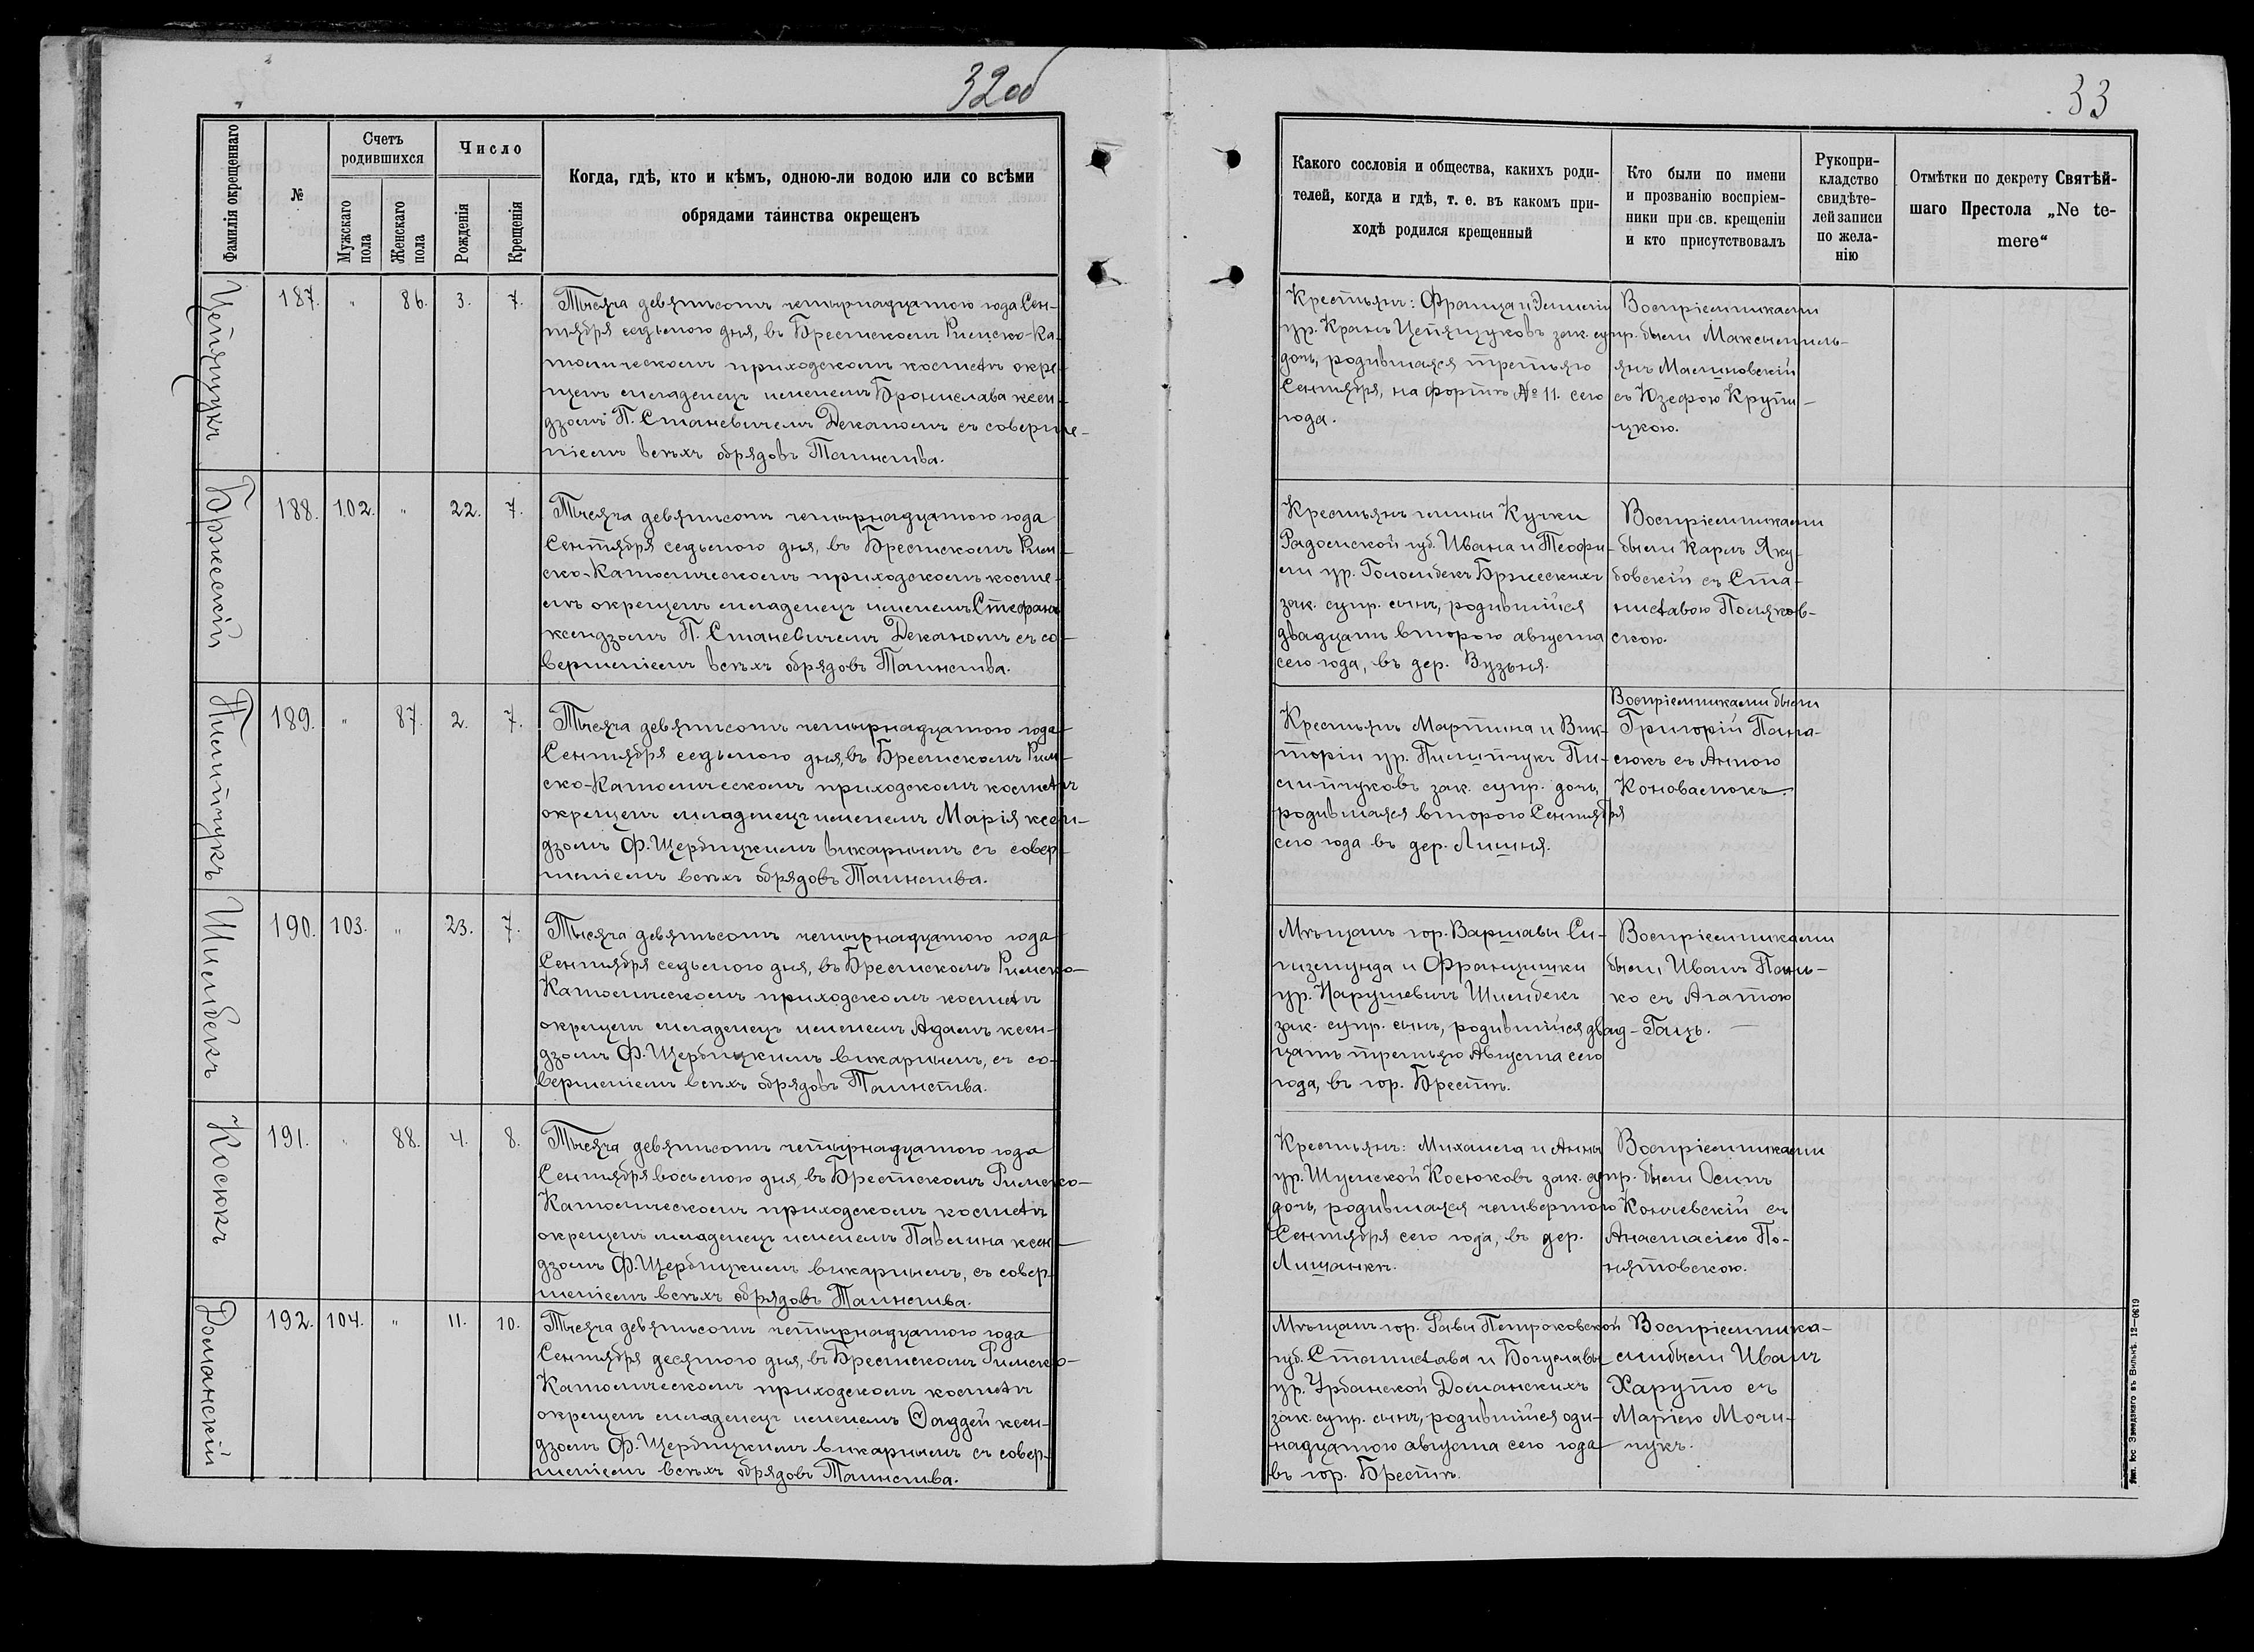 32об
Фамилія окрещеннаго
№
Счетъ родившихся
Мужскаго пола
Женскаго пола
Число
Рожденія
Крещенія
Когда, гдѣ, кто и кѣмъ, одною-ли водою или со всѣми
обрядами таинства окрещенъ
187. " 86. 3. 7.
Тысяча девятьсотъ четырнадцатого года Сен-
тября седьмого дня, въ Брестскомъ Римско-Ка-
толическомъ приходскомъ костелѣ окре-
щенъ младенецъ именемъ Бронислава ксен-
дзомъ П. Станевичемъ Деканомъ съ соверше-
ніемъ всѣхъ обрядовъ Таинства.
Бржескій
188. 102. " 22. 7.
Тысяча девятьсотъ четырнадцатого года
Сентября седьмого дня, въ Брестскомъ Рим-
ско-Католическомъ приходскомъ косте-
лѣ окрещенъ младенецъ именемъ Стефанъ
ксендзомъ П. Станевичемъ Деканомъ съ со-
вершеніемъ всѣхъ обрядовъ Таинства.
Пилипчукъ
189. " 87. 2. 7.
Тысяча девятьсотъ четырнадцатого года
Сентября седьмого дня, въ Брестскомъ Рим-
ско-Католическомъ приходскомъ костелѣ
окрещенъ младенецъ именемъ Марія ксен-
дзомъ Ф. Щербицкимъ викарнымъ съ совер-
шеніемъ всѣхъ обрядовъ Таинства.
Шимбекъ
190. 103. " 23. 7.
Тысяча девятьсотъ четырнадцатого года
Сентября седьмого дня, въ Брестскомъ Римско-
Католическомъ приходскомъ костелѣ
окрещенъ младенецъ именемъ Адамъ ксен-
дзомъ Ф. Щербицкимъ викарнымъ, съ со-
вершеніемъ всѣхъ обрядовъ Таинства.
Косюкъ
191. " 88. 4. 8.
Тысяча девятьсотъ четырнадцатого года
Сентября восьмого дня, въ Брестскомъ Римско-
Католическомъ приходскомъ костелѣ
окрещенъ младенецъ именемъ Павлина ксен-
дзомъ Ф. Щербицкимъ викарнымъ, съ совер-
шеніемъ всѣхъ обрядовъ Таинства.
Доманскій
192. 104. " 11. 10.
Тысяча девятьсотъ четырнадцатого года
Сентября десятого дня, въ Брестскомъ Римско-
Католическомъ приходскомъ костелѣ
окрещенъ младенецъ именемъ Ѳаддей ксен-
дзомъ Ф. Щербицкимъ викарнымъ съ совер-
шеніемъ всѣхъ обрядовъ Таинства.
33
Какого сословія и общества, какихъ роди-
телей, когда и гдѣ, т. е. въ какомъ при-
ходѣ родился крещенный
Кто были по имени
и прозванію воспріем-
ники при св. крещеніи
и кто присутствовалъ
Рукопри-
кладство
свидѣте-
лей записи
по жела-
нію
Отмѣтки по декрету Святѣй-
шаго Престола „Ne te-
mere“
Крестьянъ: Франца и Эмиліи
ур. Кранъ зак. супр.
дочь, родившаяся третьяго
Сентября, на фортѣ № 11. сего
года.
Воспріемниками
были Максимиль-
янъ Малиновскій
съ Юзефою Крупи-
цкою.
Крестьянъ гмины Кучки
Радомской губ. Ивана и Теофи-
ли ур. Голомбекъ Бржескихъ
зак. супр. сынъ, родившійся
двадцать второго августа
сего года, въ дер. Вузьня.
Воспріемниками
были Карлъ Яку-
бовскій съ Ста-
ниславою Поляков-
скою.
Крестьянъ Мартина и Вик-
торіи ур. Пилипчукъ Пи-
липчуковъ зак. супр. дочь,
родившаяся второго Сентября
сего года въ дер. Лишня.
Воспріемниками были
Григорій Пана-
сюкъ съ Анною
Коновалюкъ.
Мѣщанъ гор. Варшавы Си-
гизмунда и Францишки
ур. Нарушевичъ Шимбекъ
зак. супр. сынъ, родившійся двад-
цать третьяго Августа сего
года, въ гор. Брестѣ.
Воспріемниками
были Иванъ Пань-
ко съ Агатою
Гацъ.
Крестьянъ: Михаила и Анны
ур. Шумской Косюковъ зак. супр.
дочь, родившаяся четвертого
Сентября сего года, въ дер.
Лищанкѣ.
Воспріемниками
были Осипъ
Кончевскій съ
Анастасіею По-
нятовскою.
Мѣщанъ гор. Равы Петроковской
губ. Станислава и Богуславы
ур. Урбанской Доманскихъ
зак. супр. сынъ, родившійся оди-
надцатого августа сего года
въ гор. Брестѣ.
Воспріемника-
ми были Иванъ
Харуто съ
Маріею Мочи-
чукъ.